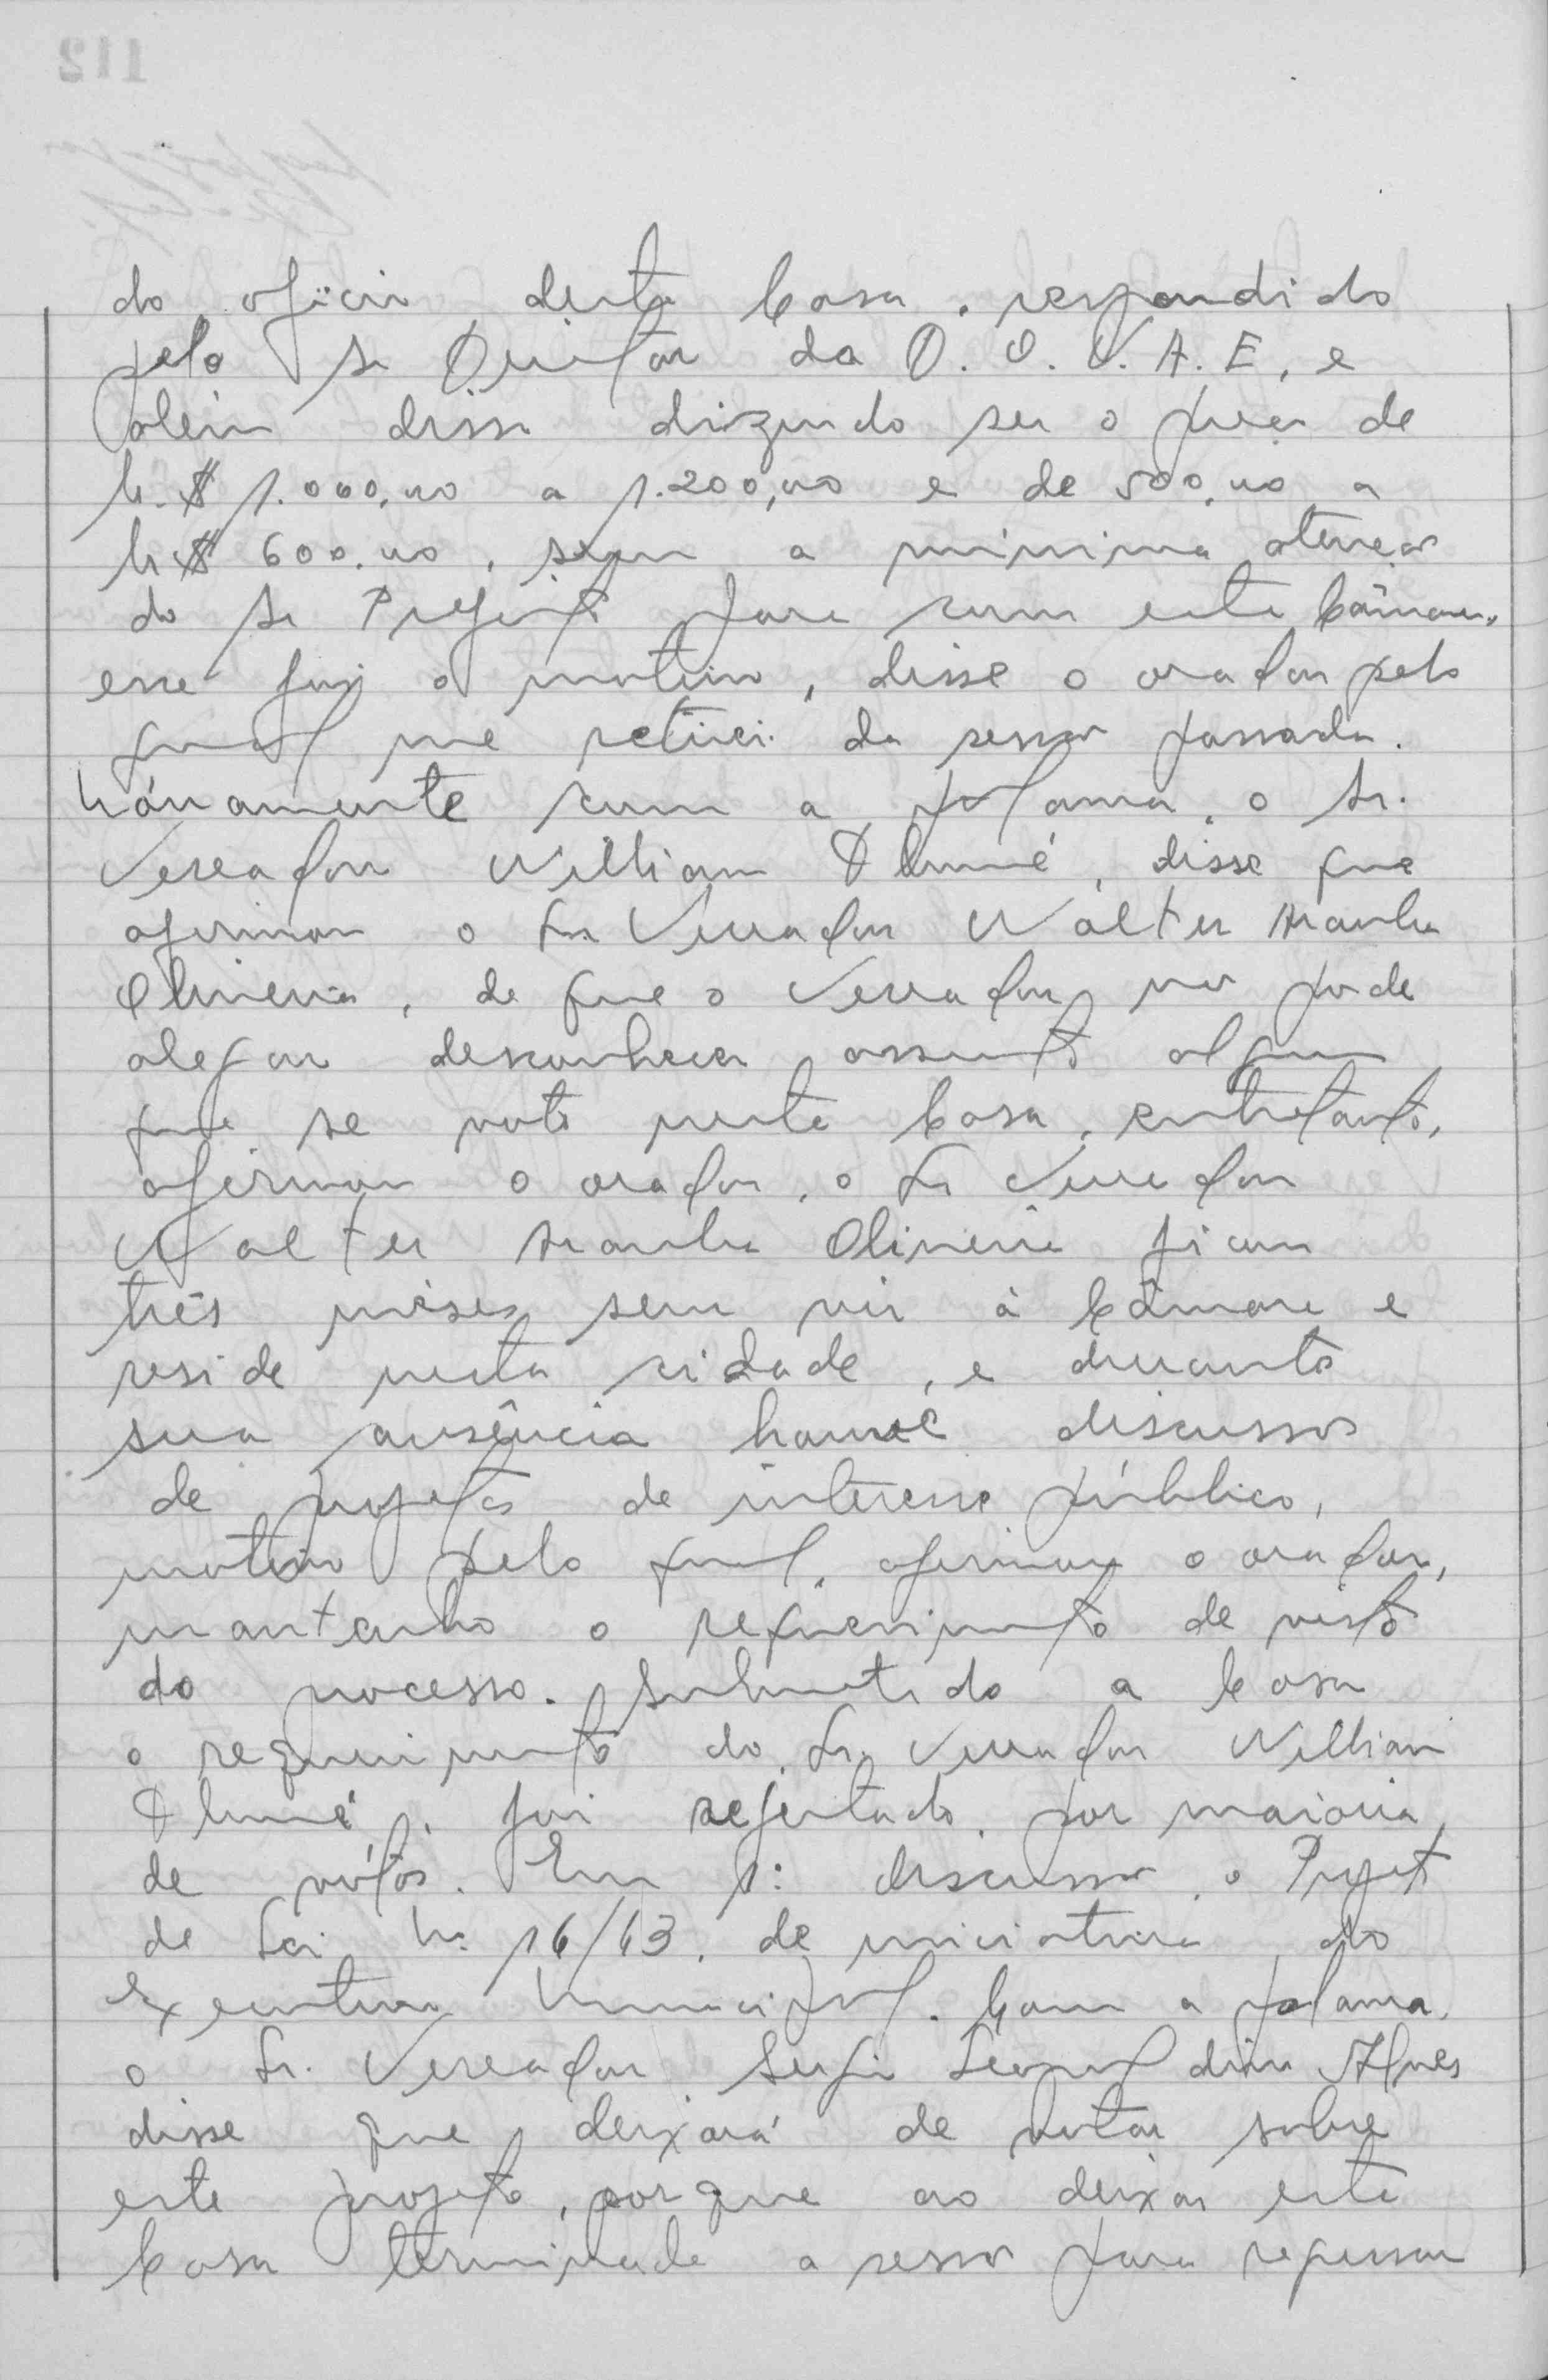 do ofício desta Casa, respondido
pelo Sr Diretor da D. O. V. A. E, e
além disso dizendo ser o preço de
Cr. $ 1.000,00 a 1.200,00 e de 500,00 a
Cr $ 600,00, sem a mínima atenção
do Sr Prefeito para com esta Câmara,
esse foi o motivo, disse o orador pelo
qual me retirei da sessão passada.
Nóvamente com a palavra, o Sr.
Vereador William, disse que
afirmou o Sr. Vereador Walter Aranha
Oliveira, de que o Vereador não pode
alegar desconhecer assunto algum
que se vote nesta Casa, entretanto,
afirmou o orador, o Sr Vereador
Walter Aranha Oliveira ficou
três mêses sem vir à Câmara e
reside nesta cidade, e durante
sua ausência houve discussão
de projetos de interesse público,
motivo pelo qual, afirmou o orador,
mantenho o requerimento de vista
do processo. Submetido a Casa
o requerimento do Sr. Vereador William
foi rejeitado por maioria
de vótos. Em 1ª discussão, o Projeto
de Lei Nº 16/63, de iniciativa do
Executivo Municipal. Com a palavra,
o Sr. Vereador Sergio Leopoldino Alves
disse que deixará de votar sobre
este projeto, porque ao deixar esta
Casa terminada a sessão para regressar